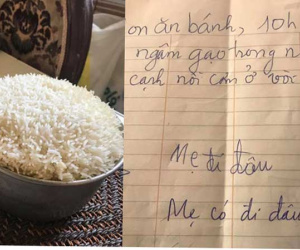 on ăn bánh, 10h
ngâm gạo trong n
cạnh nồi cơm ở vòi
Mẹ đi đâu
Mẹ có đi đâu